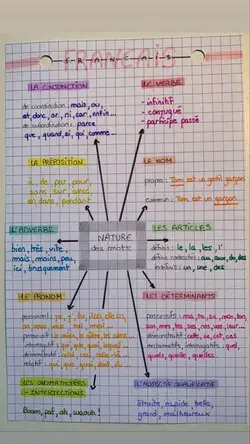 FRANÇAIS
F-R-A-N-C-A-I-S
LA CONJONCTION
de coordination: mais, ou,
et, donc, or, ni, car, enfin...
de subordination: parce
que, quand, si, qui, comme...
LE VERBE
- infinitif
- conjugué
- participe passé
LA PRÉPOSITION
à, de, par, pour,
sans, sur, avec,
en, dans, pendant
LE NOM
propre: Tom est un petit garçon.
commun: Tom est un garçon.
L'ADVERBE
bien, très, vite,
mais, moins, peu,
ici, brusquement
NATURE
des mots
LES ARTICLES
définis: le, la, les, l'
définis contractés: au, aux, du, des
indéfinis: un, une, des
LE PRONOM
personnel: je, tu, il
démonstratif:
relatif: qui, que, quoi, dont, où...
LES DÉTERMINANTS
possessifs: ma, ta, sa, mon, ton,
son, mes, tes, ses, nos, vos, leur...
démonstratif: cette, ce, cet, ces
interrogatifs: quel,
quels, quelle, quelles
LES ONOMATOPÉES
- INTERJECTIONS
Boom, paf, ah, waouh!
L'ADJECTIF QUALIFICATIF
étroite, rapide, belle,
grand, malheureux